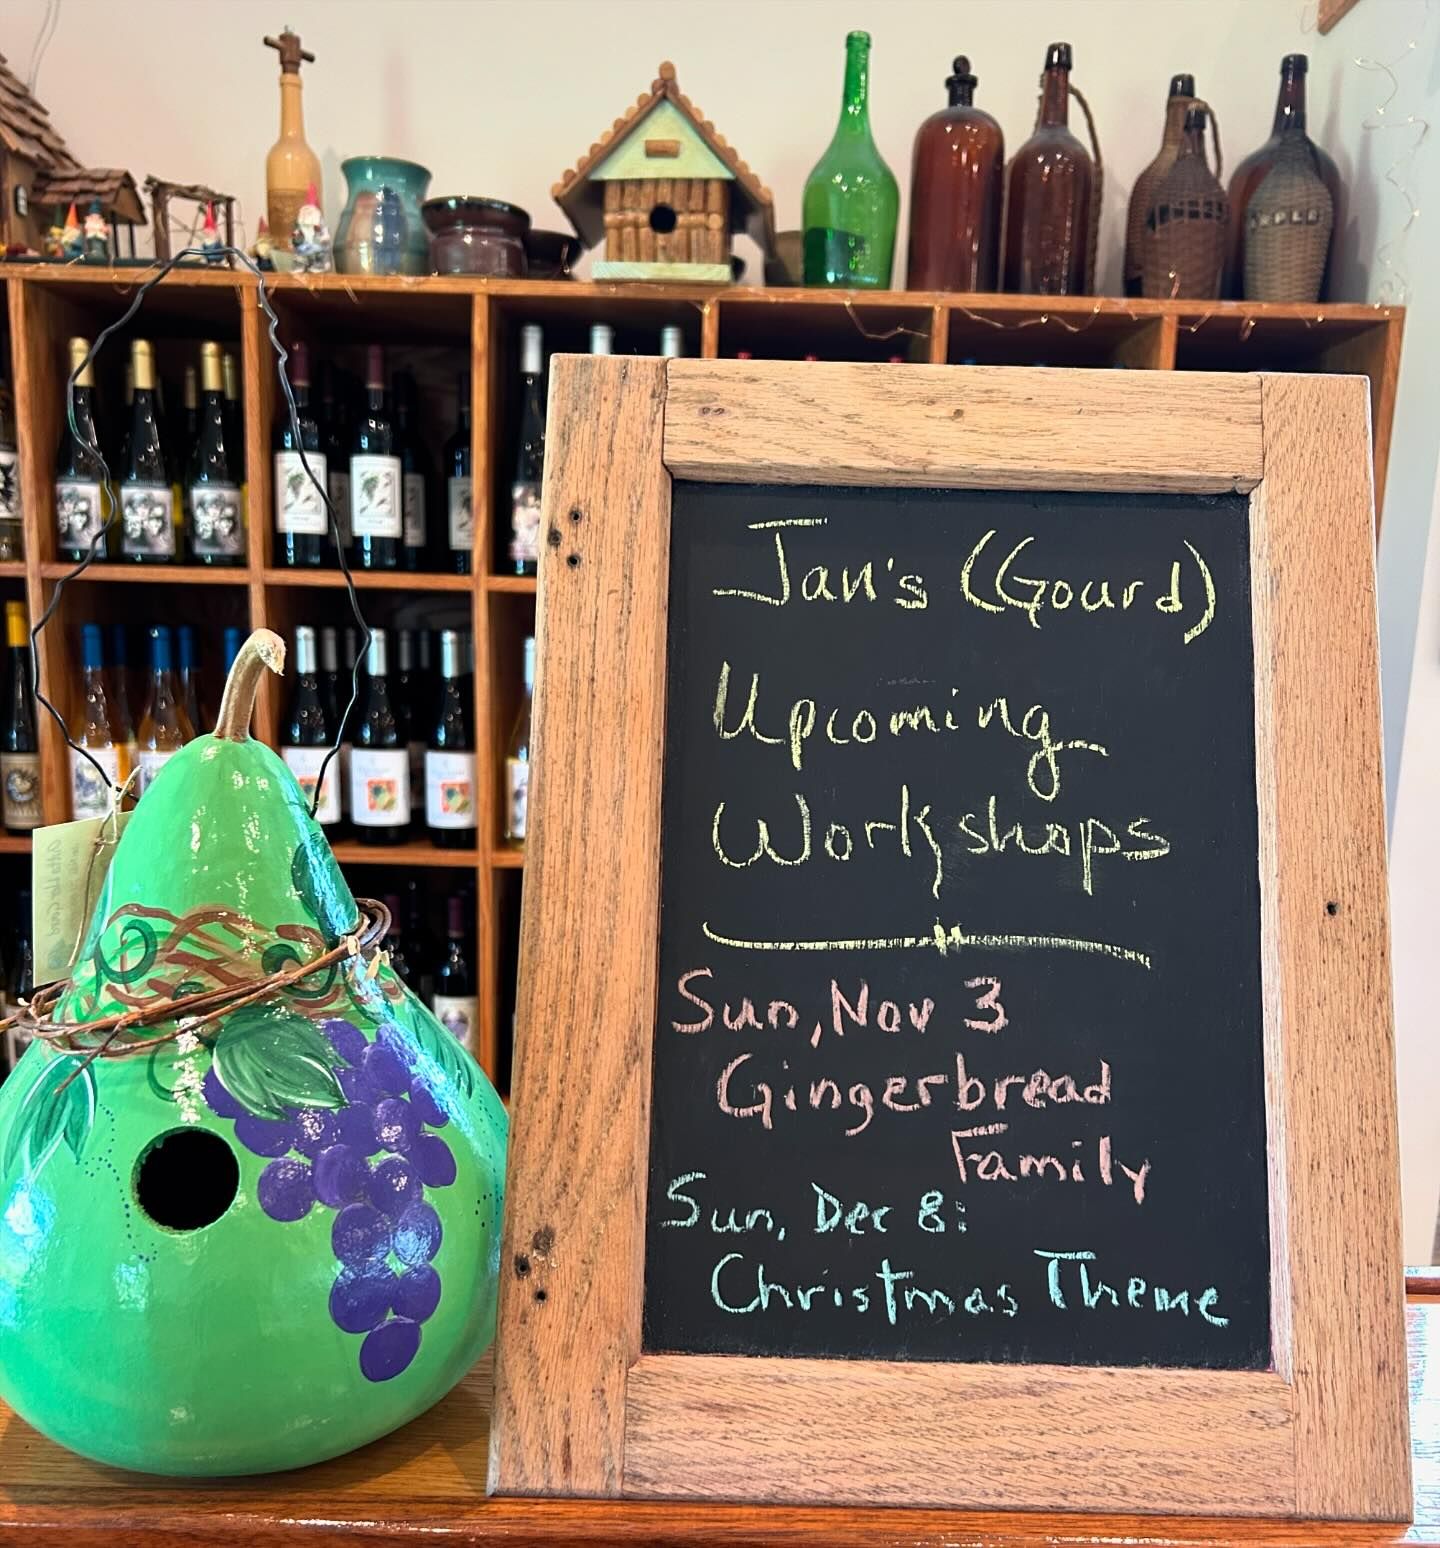 Jan's (Gourd)
Upcoming
Workshops
Sun, Nov 3
Gingerbread
Family
Sun, Dec 8:
Christmas Theme